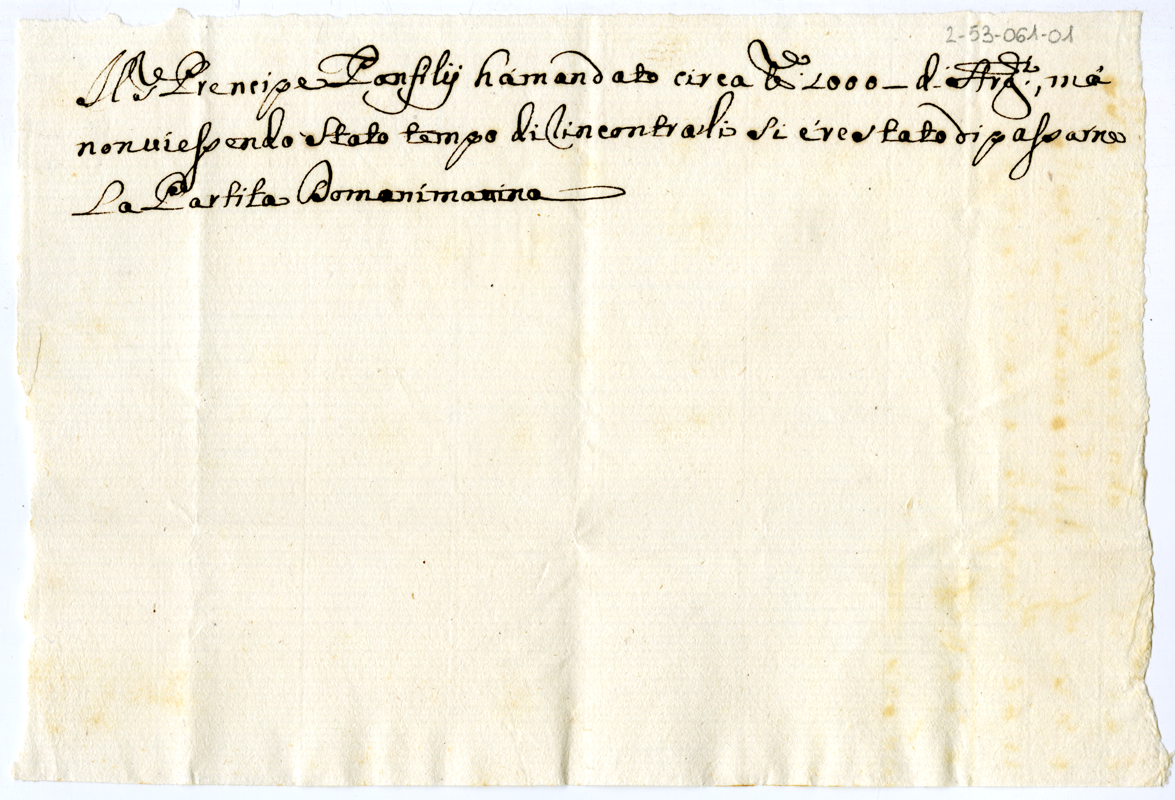 2-53-061-01
Il Prencipe Panfilij hà mandato circa 2000 – di Arg:, mà
non vi essendo stato tempo di rincontrarli si è restato di passarne
La Partita Domani matina